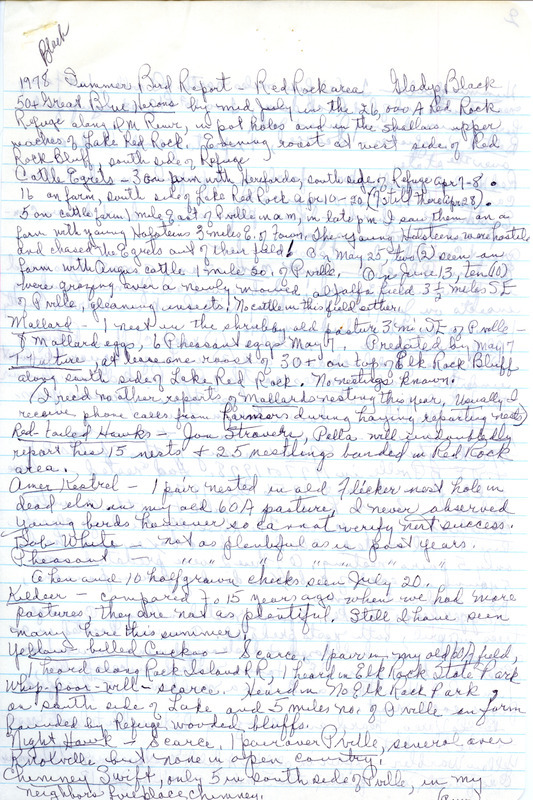 Black
1978 Summer Bird Report - Red Rock area Gladys Black
50+ Great Blue Herons by mid July in the 26,000 A Red Rock
Refuge along D.M. River, in pot holes and in the shallow upper
reaches of Lake Red Rock. Evening roost at west side of Red
Rock Bluff, south side of Refuge
Cattle Egrets - 3 on farm with Herefords, south side of Refuge Apr 7-8.
16 on farm, south side of Lake Red Rock Apr 10-20 (9 still there Apr 28).
5 on cattle farm 1 mile E of Pville in a.m, in late pm I saw them on a
farm with young Holsteins 3 miles E. of Town. The young Holsteins were hostile
and chased the Egrets out of their field! On May 25 two (2) seen on
farm with Angus cattle 1 mile So. of Pville. On June 13, Ten (10)
were grazing over a newly mowed alfalfa field 3 1/2 miles SE
of Pville, gleaning insects! No cattle in this field either.
Mallard - 1 nest in the shrubby old pasture 3 mi. SE of Pville -
8 Mallard eggs, 6 Pheasant eggs May 7. Predated by May 17
T Vulture, at least one roost of 30+ on top of Elk Rock Bluff
along south side of Lake Red Rock. No nestings known.
(I recd no other reports of Mallards nesting this year, Usually I
receive phone calls from farmers during haying reporting nests)
Red-tailed Hawks - Jon Stravers, Pella will undoubtedly
report his 15 nests + 25 nestlings banded in Red Rock
area.
Amer Kestrel - 1 pair nested in old Flicker nest hole in
dead elm in my old 60A pasture, I never observed
young birds however so cannot verify nest success.
Bob White - not as plentiful as in past years.
Pheasant - " " " " " "
A hen and 10 half grown chicks seen July 20.
Killdeer - compared to 15 years ago when we had more
pastures, they are not as plentiful. Still I have seen
many here this summer!
Yellow-billed Cuckoo - Scarce. 1 pair in my old 60A field,
1 heard along Rock Island RR, 1 heard in Elk Rock State Park
Whip-poor-will - scarce. Heard in No Elk Rock Park,
on south side of Lake and 5 miles no. of Pville on farm
bounded by Refuge wooded bluffs.
Night Hawk - Scarce. 1 pair over Pville, several over
Knoxville but none in open country.
Chimney Swift, only 5 in south side of Pville, in my
neighbors fireplace chimney.